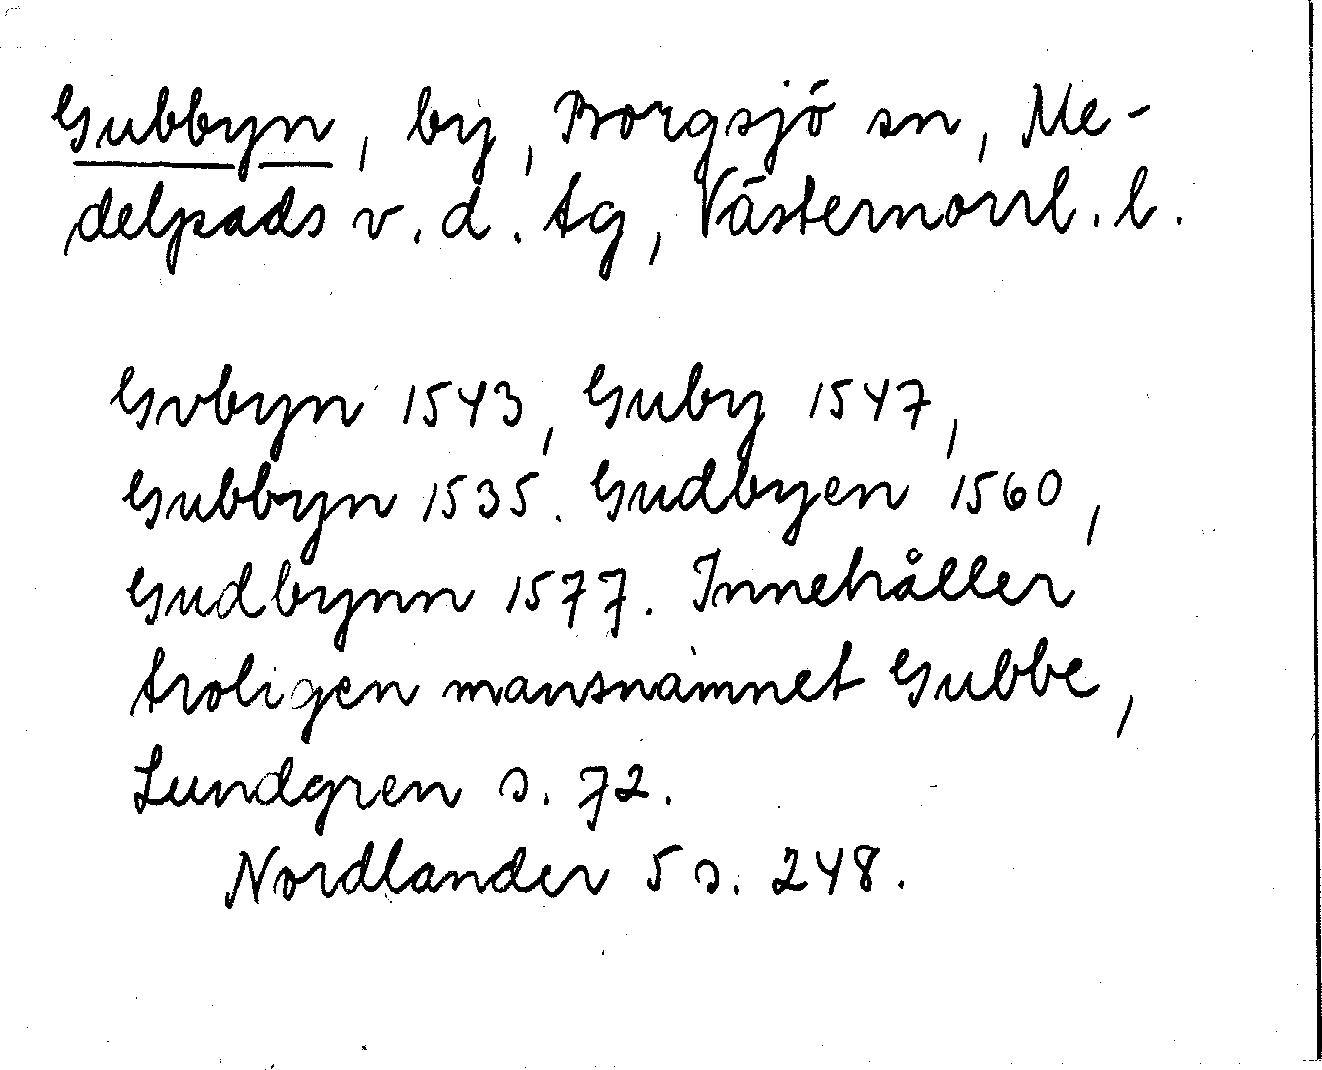 Gubbyn, by, Borgsjö sn, Me-
delpads v. d. tg, Västernorrl. l.
Gvbyn 1543, Guby 1547,
Gubbyn 1535. Gudbyen 1560,
Gudbynn 1577. Innehåller
troligen mansnamnet Gubbe,
Lundgren s. 72.
Nordlander 5 s. 248.